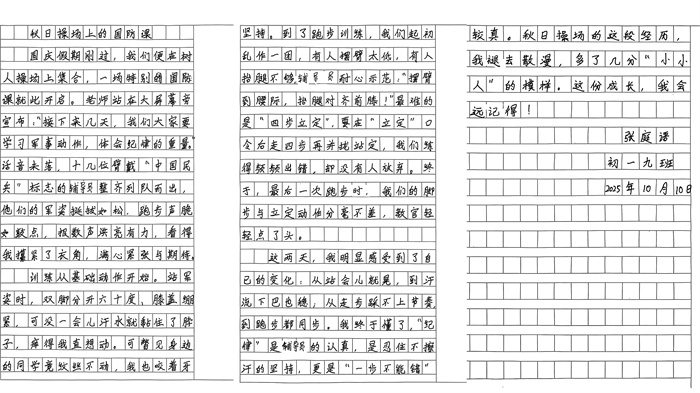 秋日操场上的国防课
国庆假期刚过，我们便在树
人操场上集合，一场特别的国防
课就此开启。老师站在大屏幕旁
宣布："接下来几天，我们大家要
学习军事动作，体会纪律的重量。"
话音未落，十几位臂戴"中国民
兵"标志的辅导员整齐列队而出，
他们的军姿挺拔如松，跑步声脆
如鼓点，报数声洪亮有力，看得
我攥紧了衣角，满心紧张与期待。
训练从基础动作开始。站军
姿时，双脚分开六十度、膝盖绷
紧，可没一会儿汗水就黏住了脖
子，痒得我直想动。可瞥见身边
的同学竟纹丝不动，我也咬着牙
坚持。到了跑步训练，我们起初
乱作一团，有人摆臂太低，有人
抬腿不够辅导员耐心示范，"摆臂
到腰际，抬腿对齐前膝！"最难的
是"四步立定"，要在"立定"口
令后走四步再并拢站定，我们练
得频频出错，却没有人放弃。终
于，最后一次跑步时，我们的脚
步与立定动作分毫不差，教官轻
轻点了头。
这两天，我明显感受到了自
己的变化：从站会儿就晃，到汗
流下巴也稳，从走步踩不上节奏，
到跑步都同步。我终于懂了，"纪
律"是辅导员的认真，是忍住不擦
汗的坚持，更是"一步不能错"
较真。秋日操场的这段经历，
我褪去散漫，多了几分"小小
人"的模样。这份成长，我会
远记得！
张庭语
初一九班
2025年10月10日